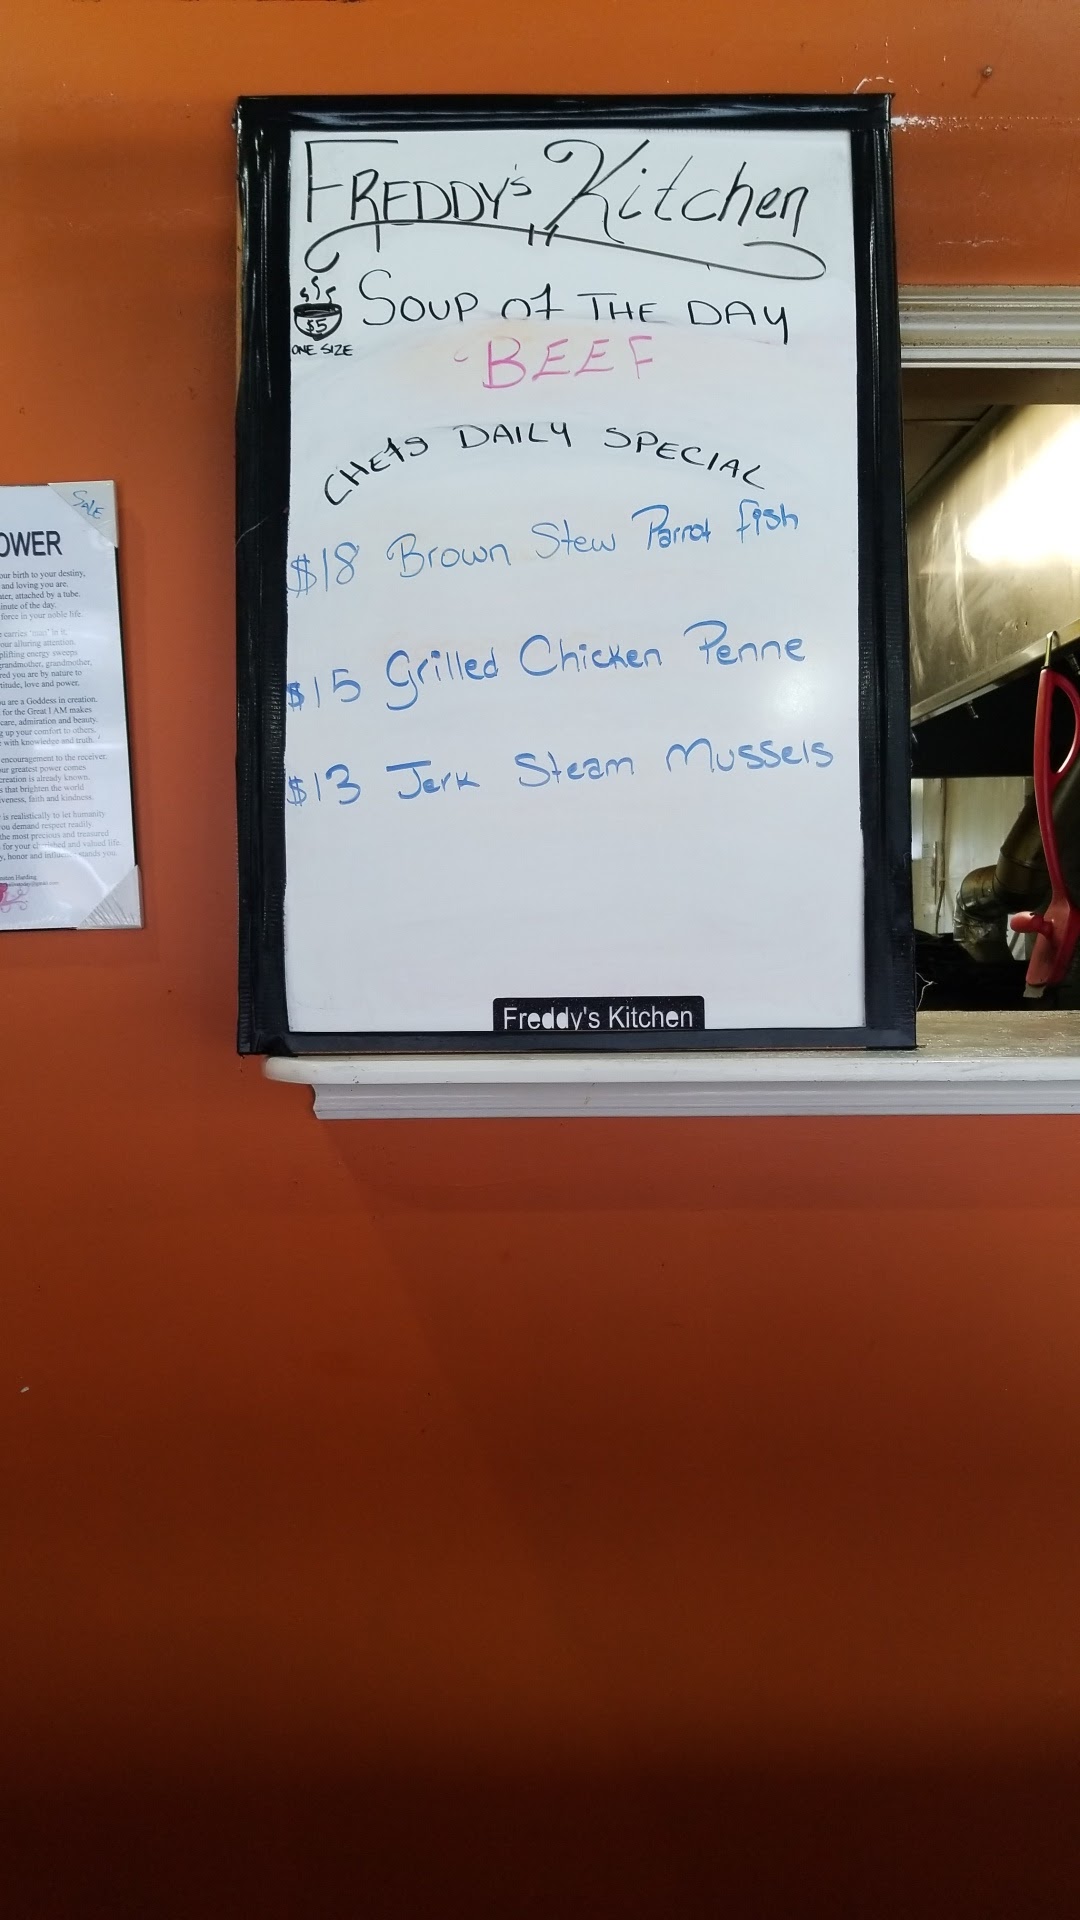 FREDDY's Kitchen
$5
ONE SIZE
SOUP of THE DAY
BEEF
CHEfS DAILY SPECIAL
$18 Brown Stew Parrot fish
$15 Grilled Chicken Penne
$13 Jerk Steam Mussels
Freddy's Kitchen
SALE
OWER
our birth to your destiny,
and loving you are.
ater, attached by a tube.
inute of the day.
force in your noble life.
carries "man" in it,
our alluring attention.
plifting energy sweeps
grandmother, grandmother,
red you are by nature to
titude, love and power.
u are a Goddess in creation.
for the Great I AM makes
care, admiration and beauty.
g up your comfort to others.
with knowledge and truth.
encouragement to the receiver.
ur greatest power comes
creation is already known.
s that brighten the world
iveness, faith and kindness.
is realistically to let humanity
ou demand respect readily.
the most precious and treasured
for your cherished and valued life.
y, honor and stands you.
Harding